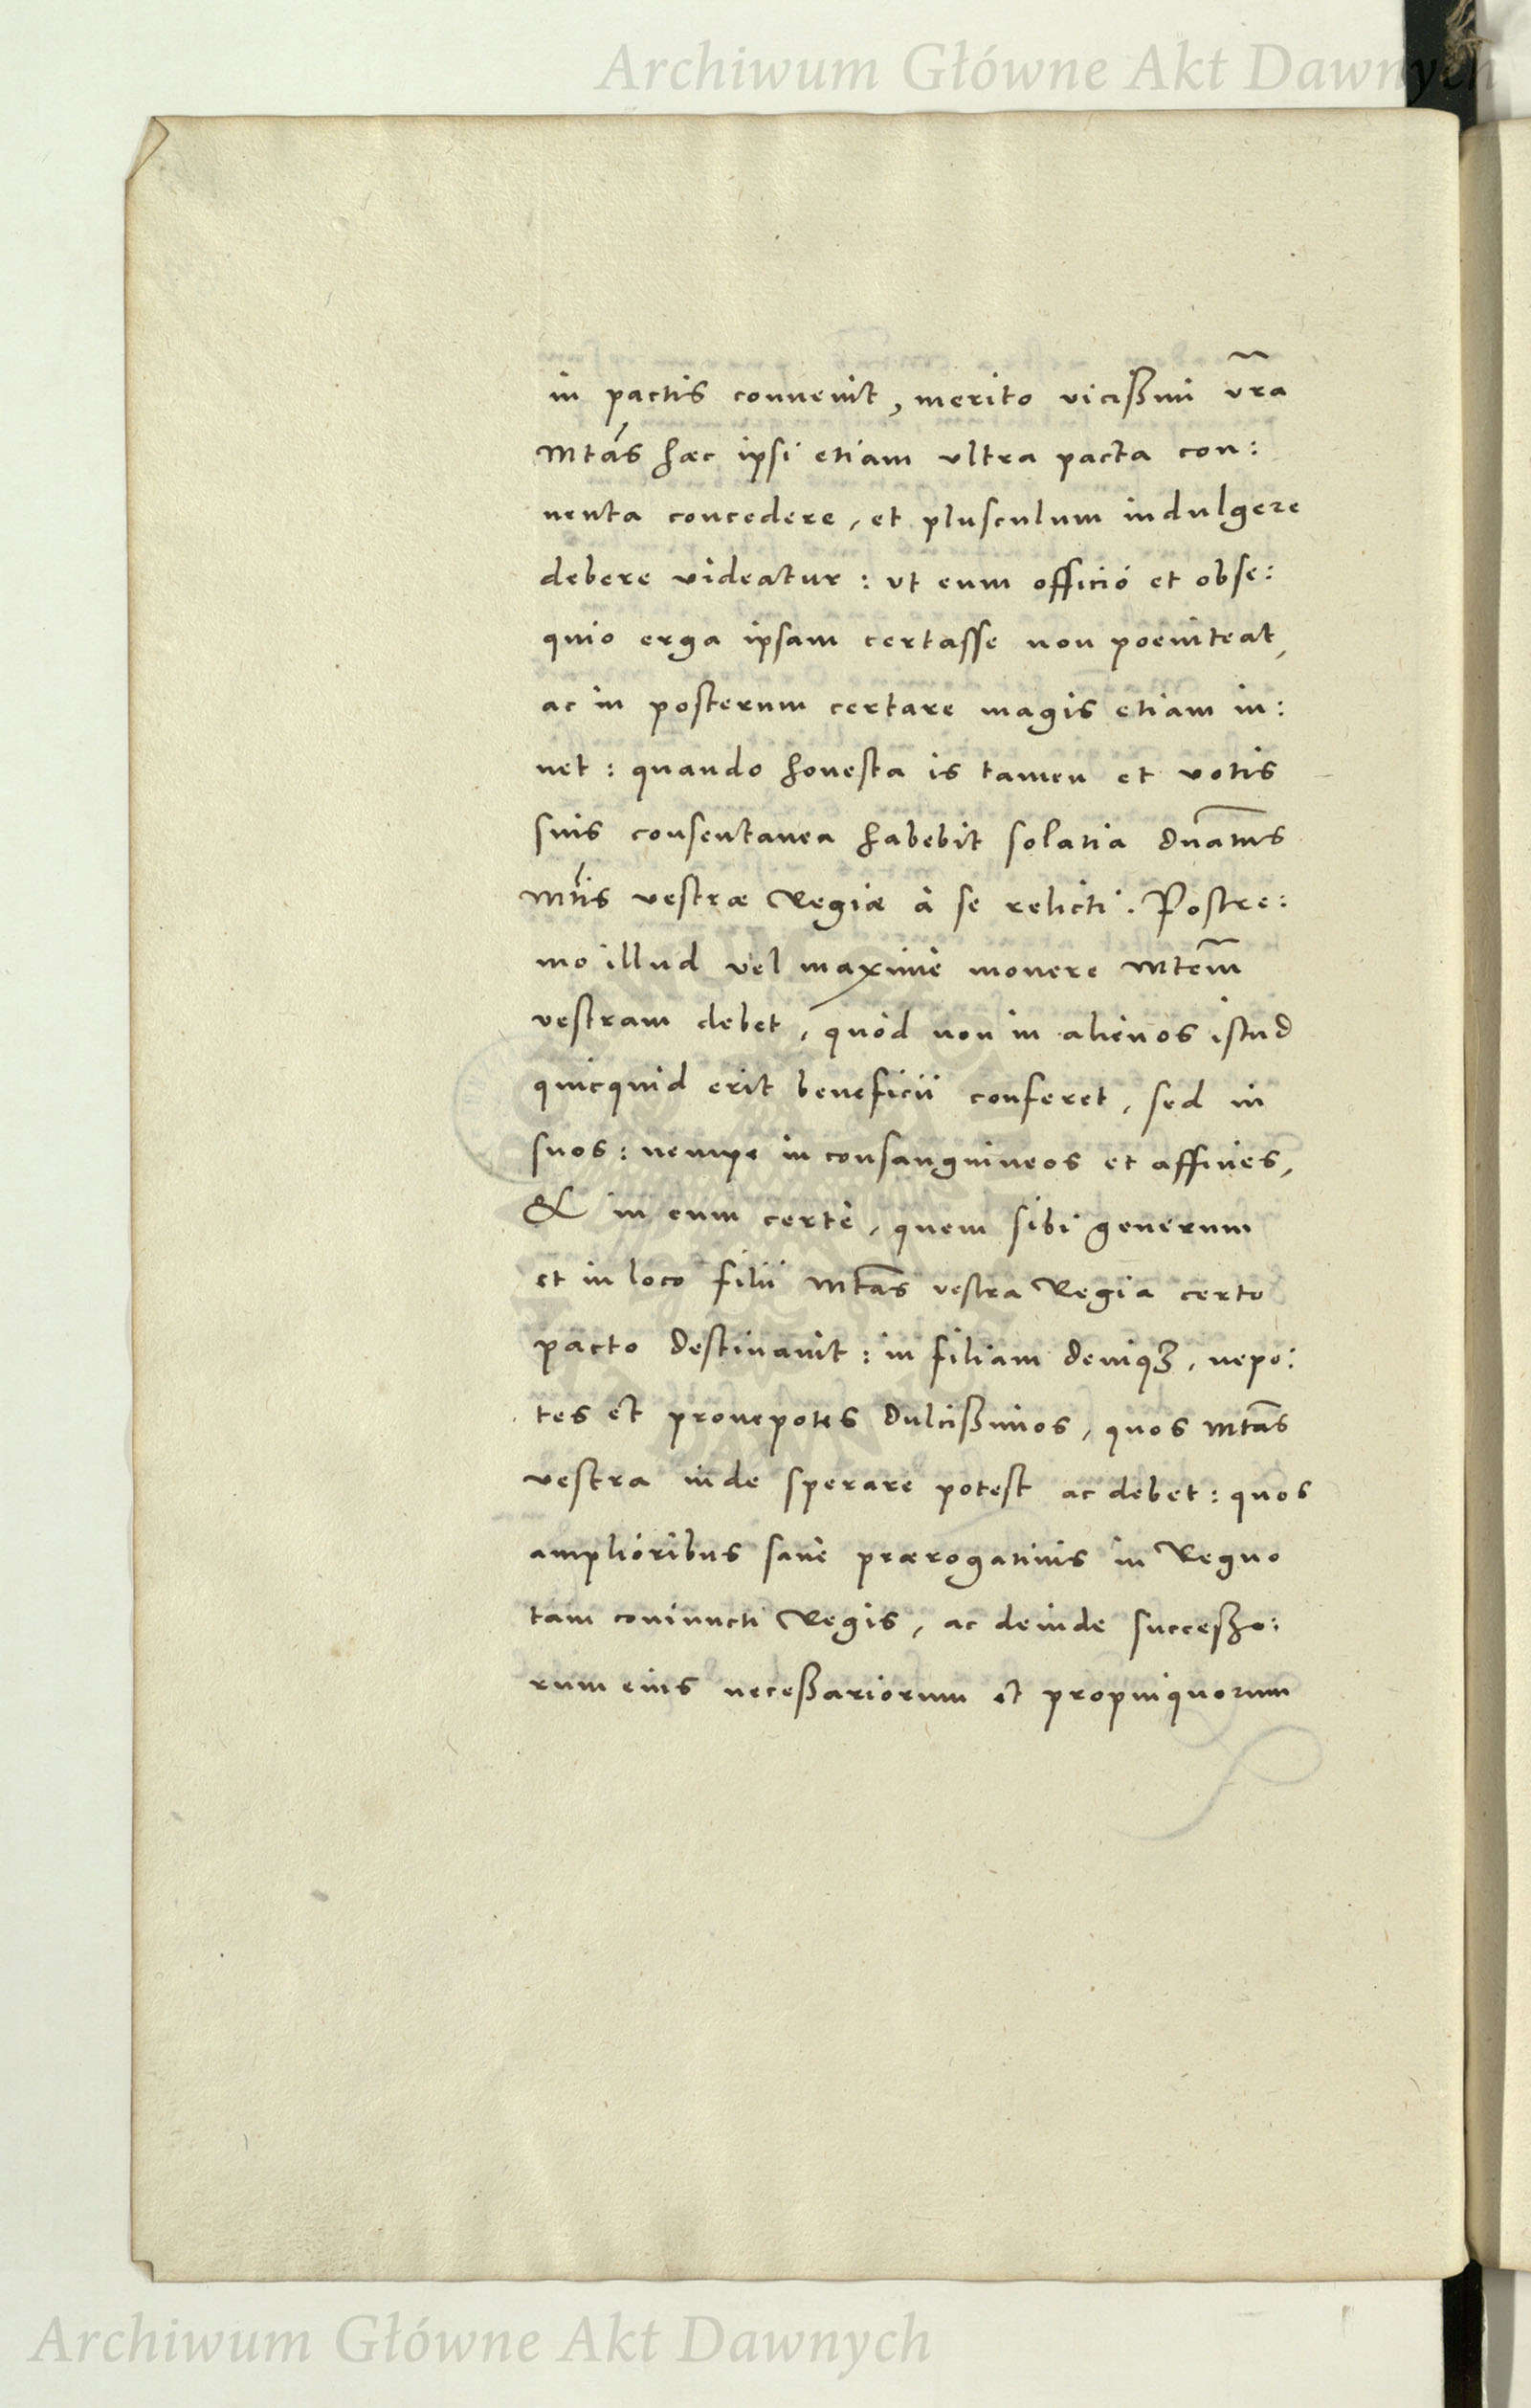 Archiwum Główne Akt Dawnych
in pactis convenit, merito vicißim vr̃a
Mtãs hæc ipsi etiam ultra pacta con:
venta concedere, et plusculum indulgere
debere videatur: ut eum officio et obse:
quio erga ipsam certasse non poeniteat,
ac in posterum certare magis etiam iu:
vet: quando honesta is tamen et votis
suis consentanea habebit solatia
Mtis vestræ Regiæ à se relicti. Postre:
mo illud vel maximè movere Mtem̃
vestram debet, quòd non in alienos istud
quicquid erit beneficii conferet, sed in
suos: nempe in consanguineos et affines,
& in eum certè, quem sibi generum
et in loco filii Mtas̃ vestra Regia certo
pacto destinavit: in filiam deniqȝ, nepo:
tes et pronepotes dulcißimos, quos Mtas̃
vestra inde sperare potest ac debet: quos
amplioribus sanè prærogativis in Regno
tam coniuncti Regis, ac deinde succeßo:
rum eius neceßariorum et propinquorum
Archiwum Główne Akt Dawnych